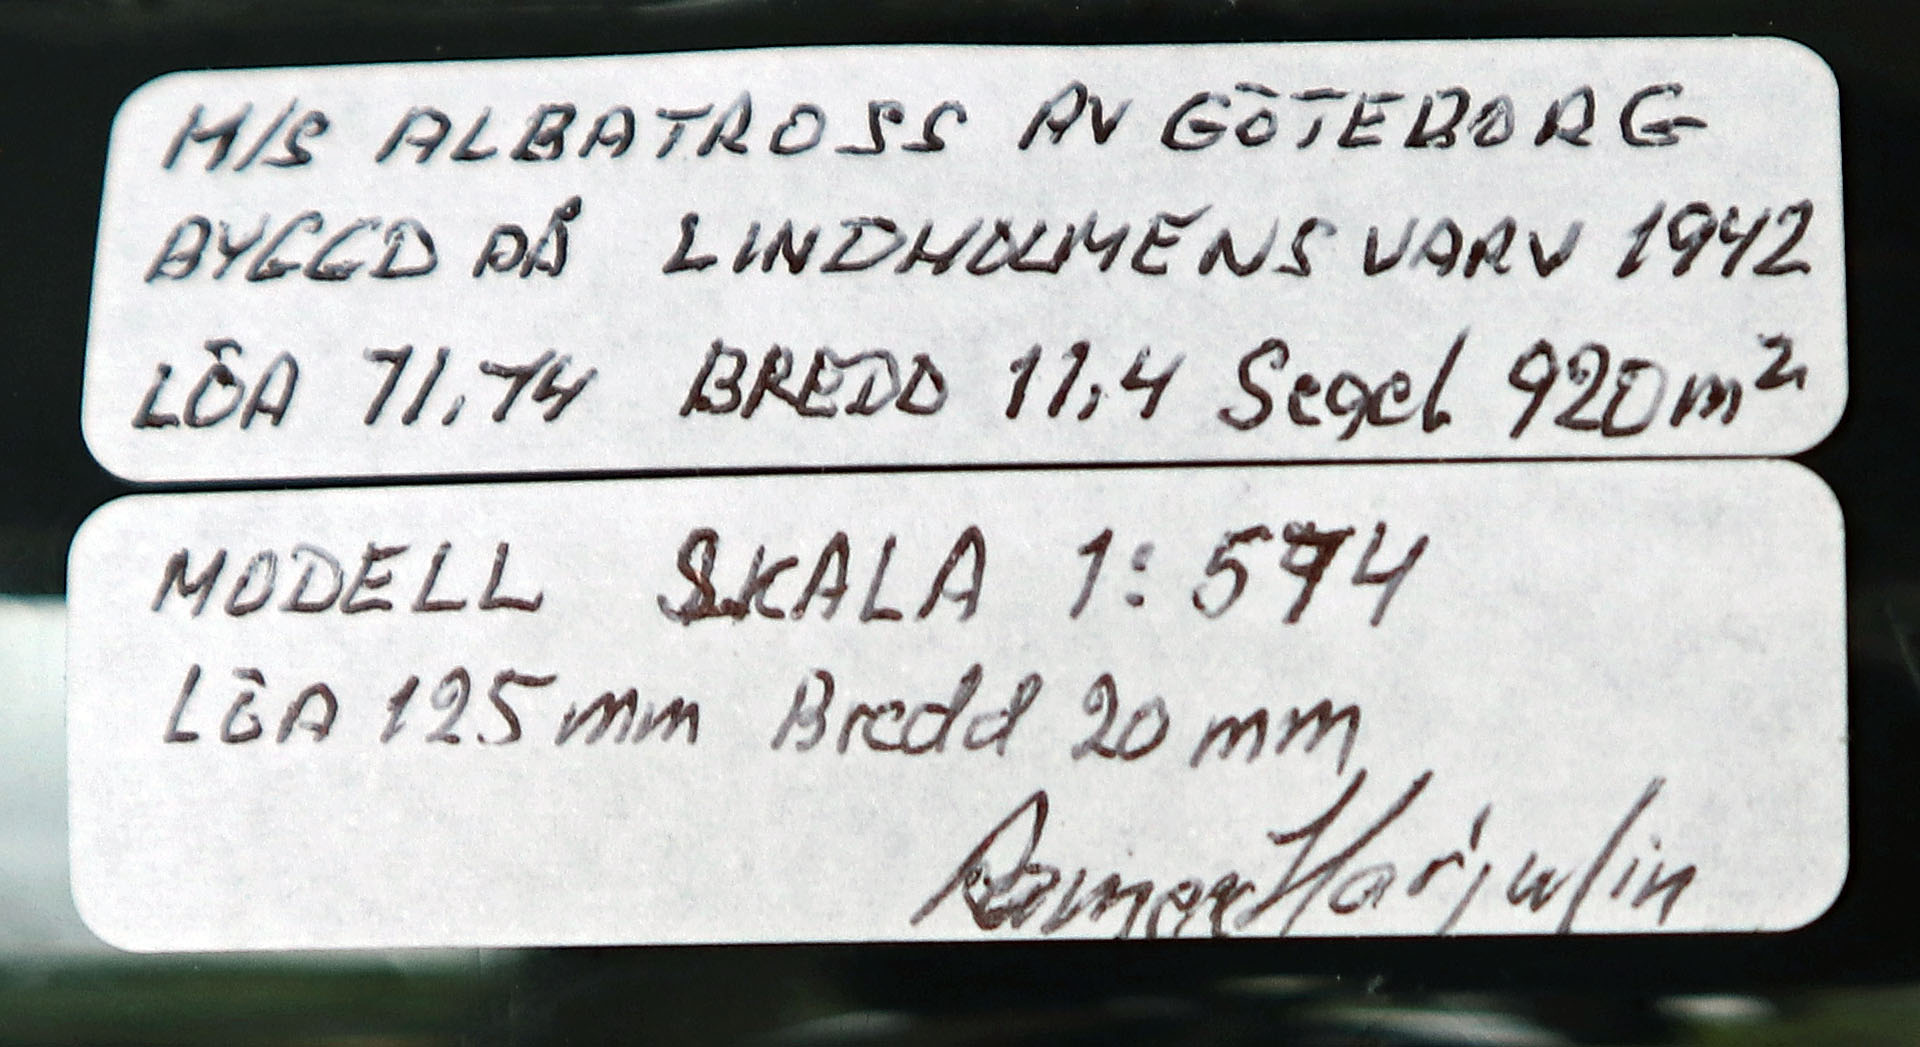 M/S ALBATROSS AV GÖTEBORG
BYGGD PÅ LINDHOLMENS VARV 1942
LÖA 71,74 BREDD 11,4 Segel 920 m²
MODELL SKALA 1:574
LÖA 125 mm Bredd 20 mm
Harjulin